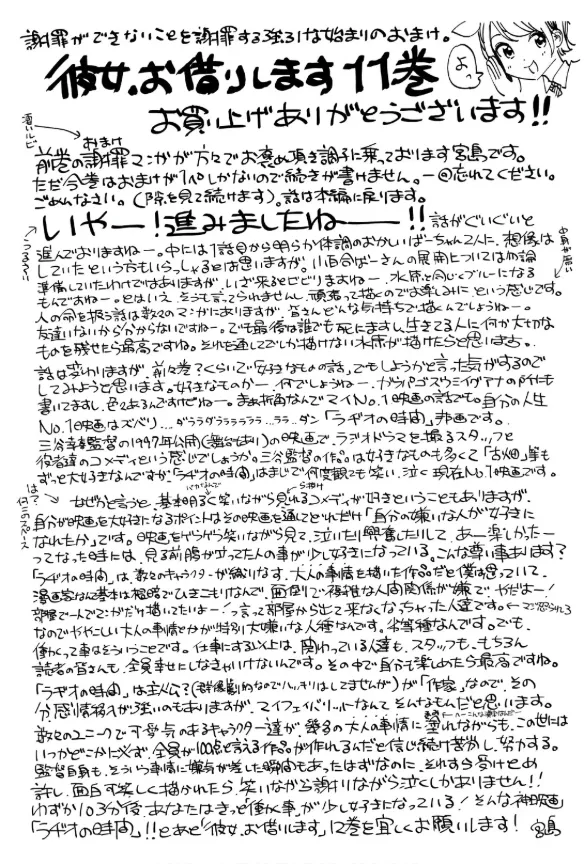 謝罪ができないことを謝罪する強引な始まりのおまけ。
よっ
彼女、お借りします11巻
お買い上げありがとうございます!!
おまけ
前巻の謝罪マンガが方々でお褒め頂き調子に乗っております宮島です。
ただ今巻はおまけが1Pしかないので続きが書けません。一回忘れてください。
ごめんなさい。(隙を見て続けます)。話は本編に戻ります。
いやー!進みましたねー!!話がぐいぐいと
進んでおりますねー。中には1話目から明らか体調のおかしいばーちゃん2人に、想像は
していたという方もいらっしゃるとは思いますが。小百合ばーさんの展開については勿論
準備していたわけではありますが、いざ来るとビビりますねー、水原と同じくブルーになる
もんですねー。とはいえ、そうも言ってられませんし、頑張って描くのでお楽しみに、という感じです。
人の命を扱う話は数々のマンガにありますが、皆さんどんな気持ちで描くんでしょうねー。
友達いないから分からないですねー。でも最後は誰でも死にますし、生きてる人に何か大切な
ものを残せたら最高ですね。それを通してしか描けない水原が描けたらと思います。
話は変わりますが、前々巻?くらいで「好きなものの話」でもしようかと言った気がするので
してみようと思います。好きなものかー、何でしょうねー。ガラパゴスウミイグアナの
書いてますし、色々あるんですけどねー。まぁ折角なんでマイNo.1映画の話でも。自分の人生
No.1映画はズバリ…「ラヂオの時間」邦画です。
三谷幸喜監督の1997年公開の映画で、ラジオドラマを撮るスタッフと
役者達のコメディという感じでしょうか。三谷監督の作品は好きなものも多くて「古畑」等も
ずっと大好きなんですが、「ラヂオの時間」はまじで何度観ても笑い、泣く現在No.1映画です。
なぜかと言うと、基本明るく笑いながら見れるコメディが好きということもありますが、
自分が映画を大好きになるポイントはその映画を通してどれだけ「自分の嫌いな人が好きに
なれたか」です。映画をゲラゲラ笑いながら見て、泣いたり興奮したりして、あー楽しかったー
ってなった時には、見る前腹が立ってた人の事が少し好きになっている。こんな尊い事あります?
「ラヂオの時間」は、数々のキャラクターが織りなす、大人の事情を描いた作品だと僕は思っていて、
漫画家なんて基本は根暗でひきこもりなんで、面倒で複雑な人間関係が嫌で、やだよー!
部屋で一人でマンガだけ描いてたいよー!って言って部屋から出て来なくなっちゃった人達です。
なのでややこしい大人の事情とかが特別大嫌いな人種なんです。劣等種なんです。でも、
働くって事はそういうことです。仕事にする以上は、関わっている人達も、スタッフも、もちろん
読者の皆さんも、全員幸せにしなきゃいけないんです。その中で自分も楽しめたら最高ですね。
「ラヂオの時間」は主人公?(群像劇的なのでハッキリはしてませんが)が「作家」なので、その
分感情移入が強いのもありますが、マイフェイバリットなんてそんなもんだと思います。
数々のユニークで可愛気のあるキャラクター達が、幾多の大人の事情に塗れながらも、この世には
いつかどこかに必ず、全員が100点と言える作品が作れるんだと信じ続け苦労し、努力する。
監督自身も、そういう事情に嫌気が差した瞬間もあったはずなのに、それすら受け止め
許し、面白可笑しく描かれたら、笑いながら謝りながら泣くしかありません!!
わずか103分後、あなたはきっと「働く事」が少し好きになっている!そんな神映画
「ラヂオの時間」!!とあと「彼女、お借りします」12巻を宜しくお願いします! 宮島